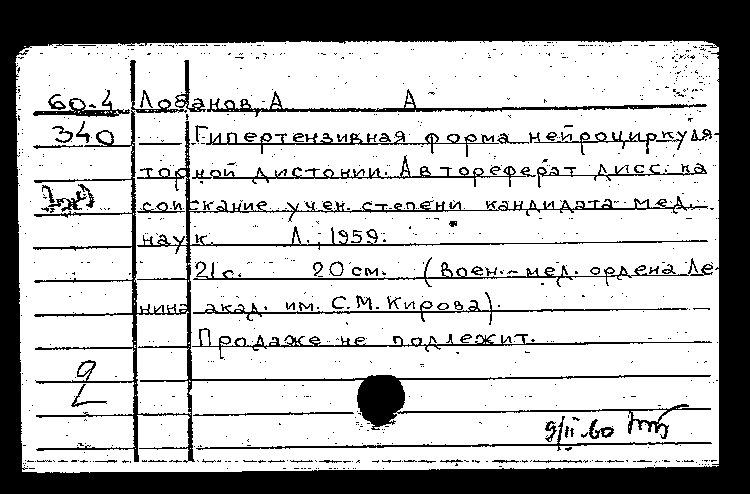 60-4 Лобанов, А А
340 Гипертензивная форма нейроциркуля-
торной дистонии. Автореферат дисс. на
соискание учен. степени кандидата мед.
наук. Л., 1959.
21с. 20 см. (Воен.-мед. ордена Ле-
нина акад. им. С.М. Кирова).
Продаже не подлежит.
2
9/II-60